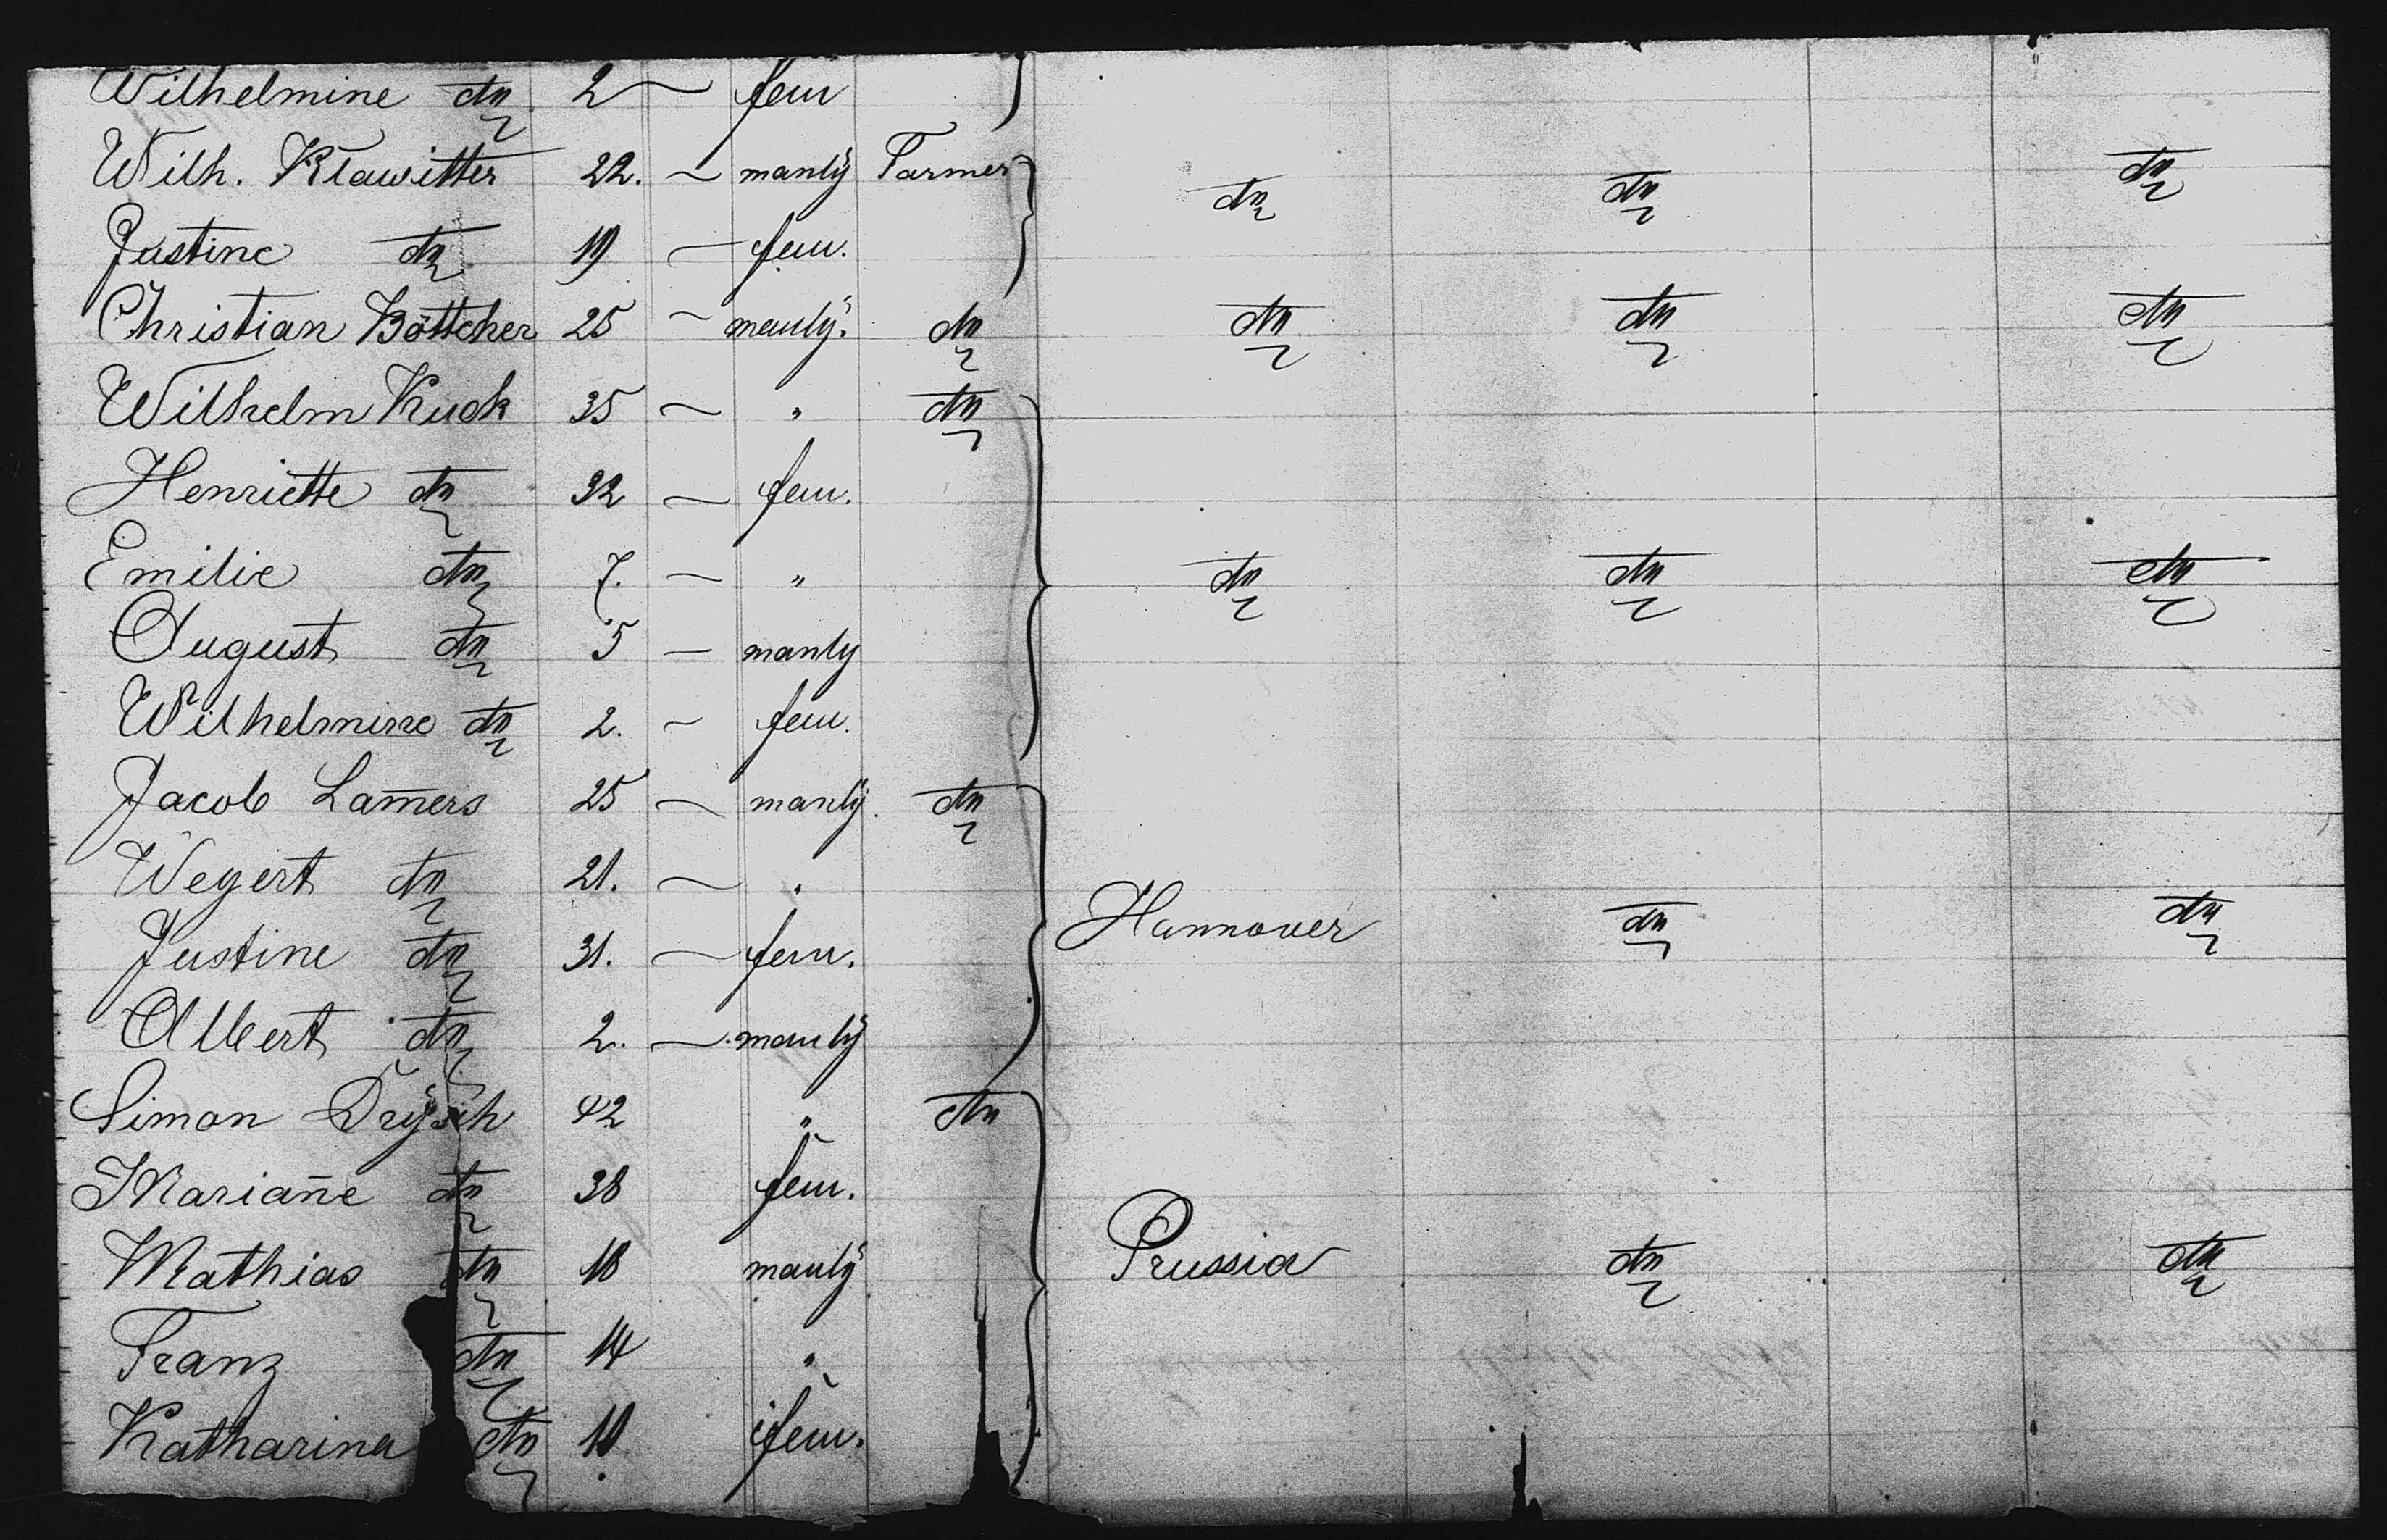 Wilhelmine do 2 — fem
Wilh. Klawitter 22. — manly Farmer do do do
Justine do 19 — fem.
Christian Böttcher 25 — manly. do do do do
Wilhelm Kuck 35 — " do
Henriette do 32 — fem.
Emilie do 7. — " do do do
August do 5 — manly
Wilhelmine do 2. — fem.
Jacob Lam̄ers 25 — manly. do
Wegert do 21. — " Hannover do do
Justine do 31. — fem.
Albert do 2. — manly
Simon 42 " do
Marian̄e do 38 fem.
Mathias do 18 manly Prussia do do
Franz do 14 "
Katharina do fem.